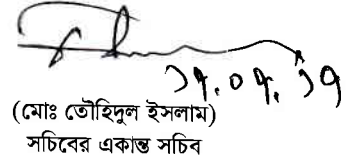 ১৭.০৭.১৭
(মোঃ তৌহিদুল ইসলাম)
সচিবের একান্ত সচিব